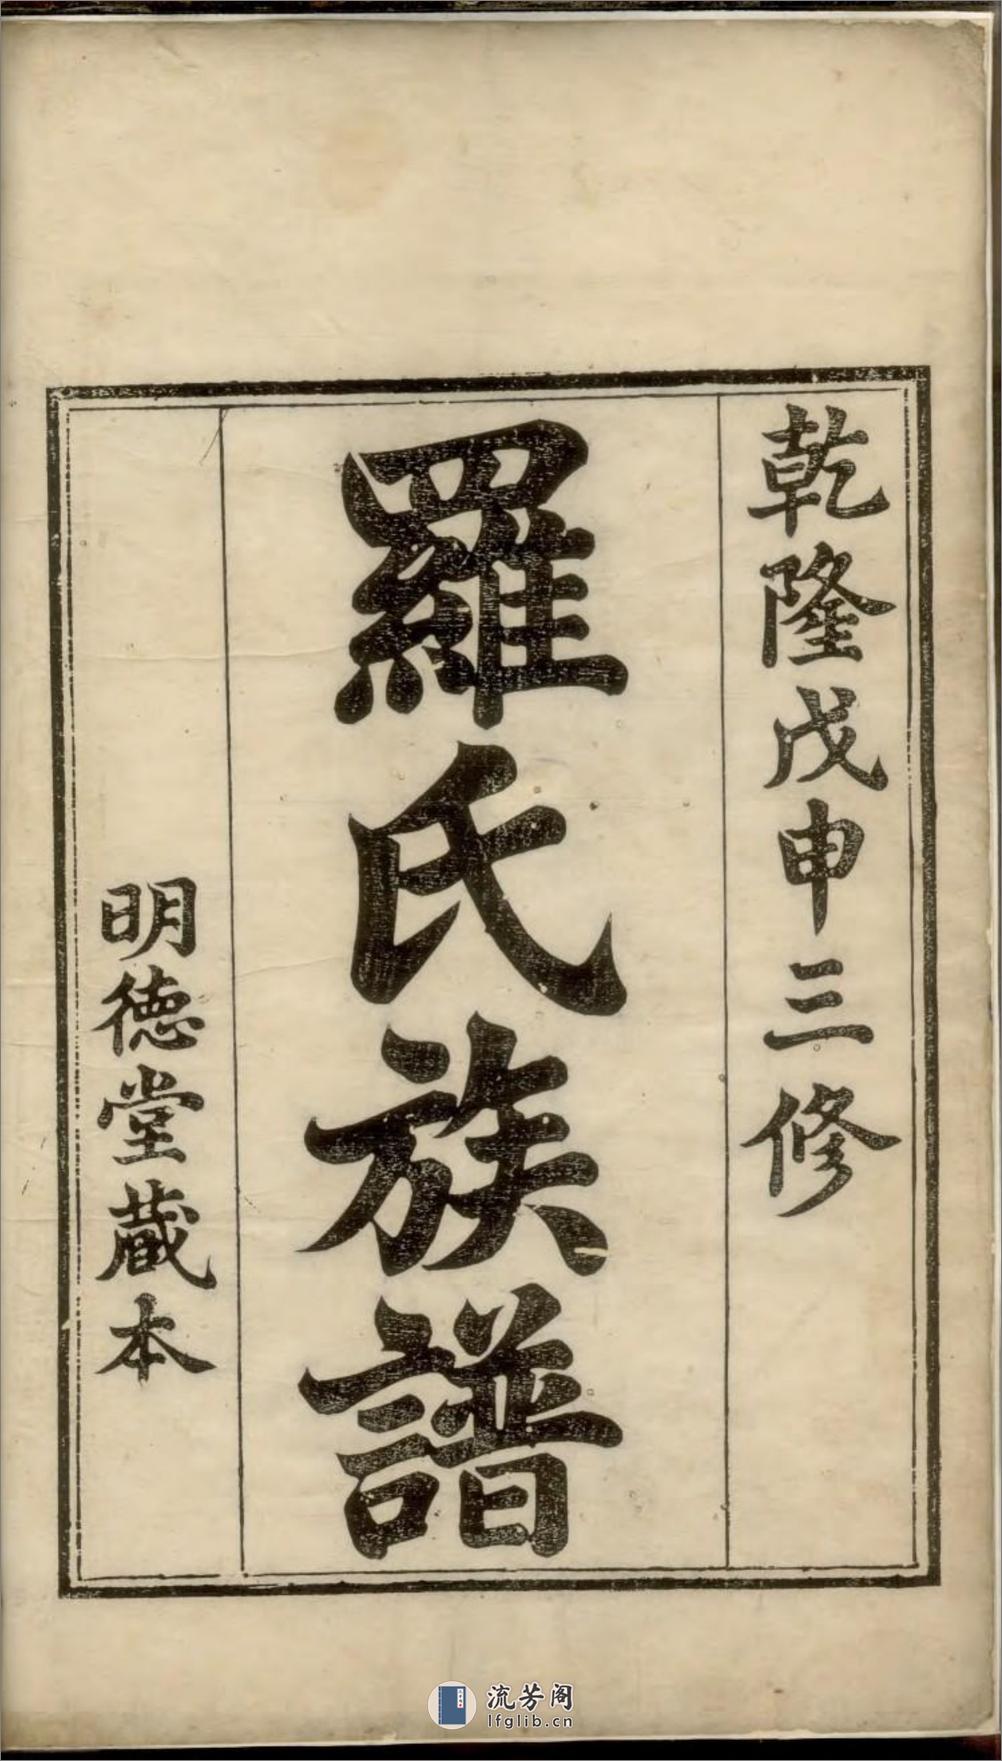 乾隆戊申三修
羅氏族譜
明德堂藏本
流芳阁
lfglib.cn